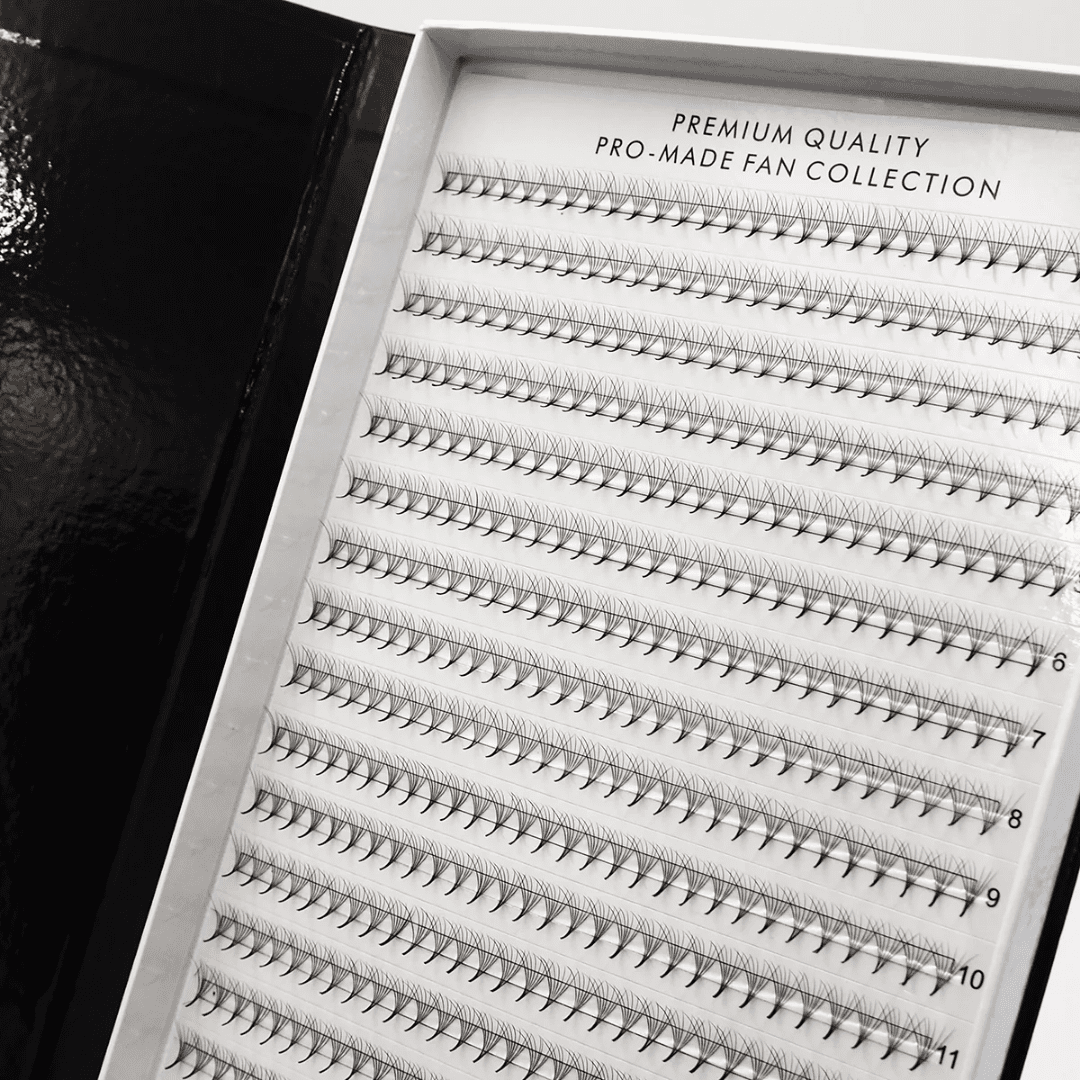 PREMIUM QUALITY
PRO-MADE FAN COLLECTION
6
7
8
9
10
11